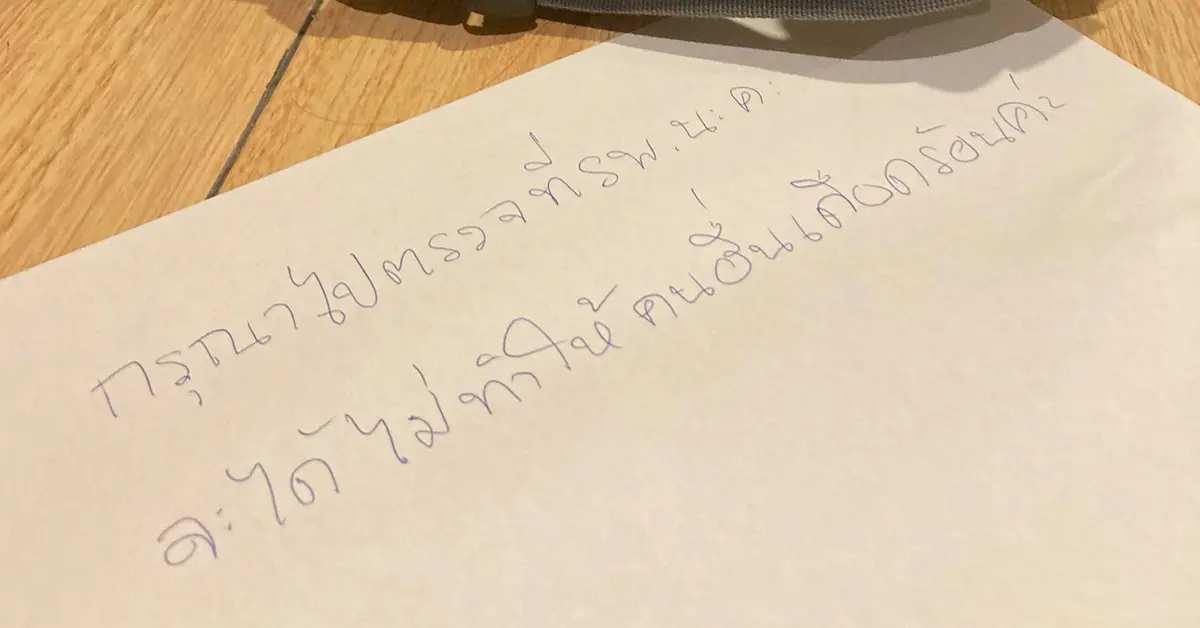 กรุณาไปตรวจที่ รพ.นะคะ
จะได้ไม่ทำให้คนอื่นเดือดร้อนค่ะ